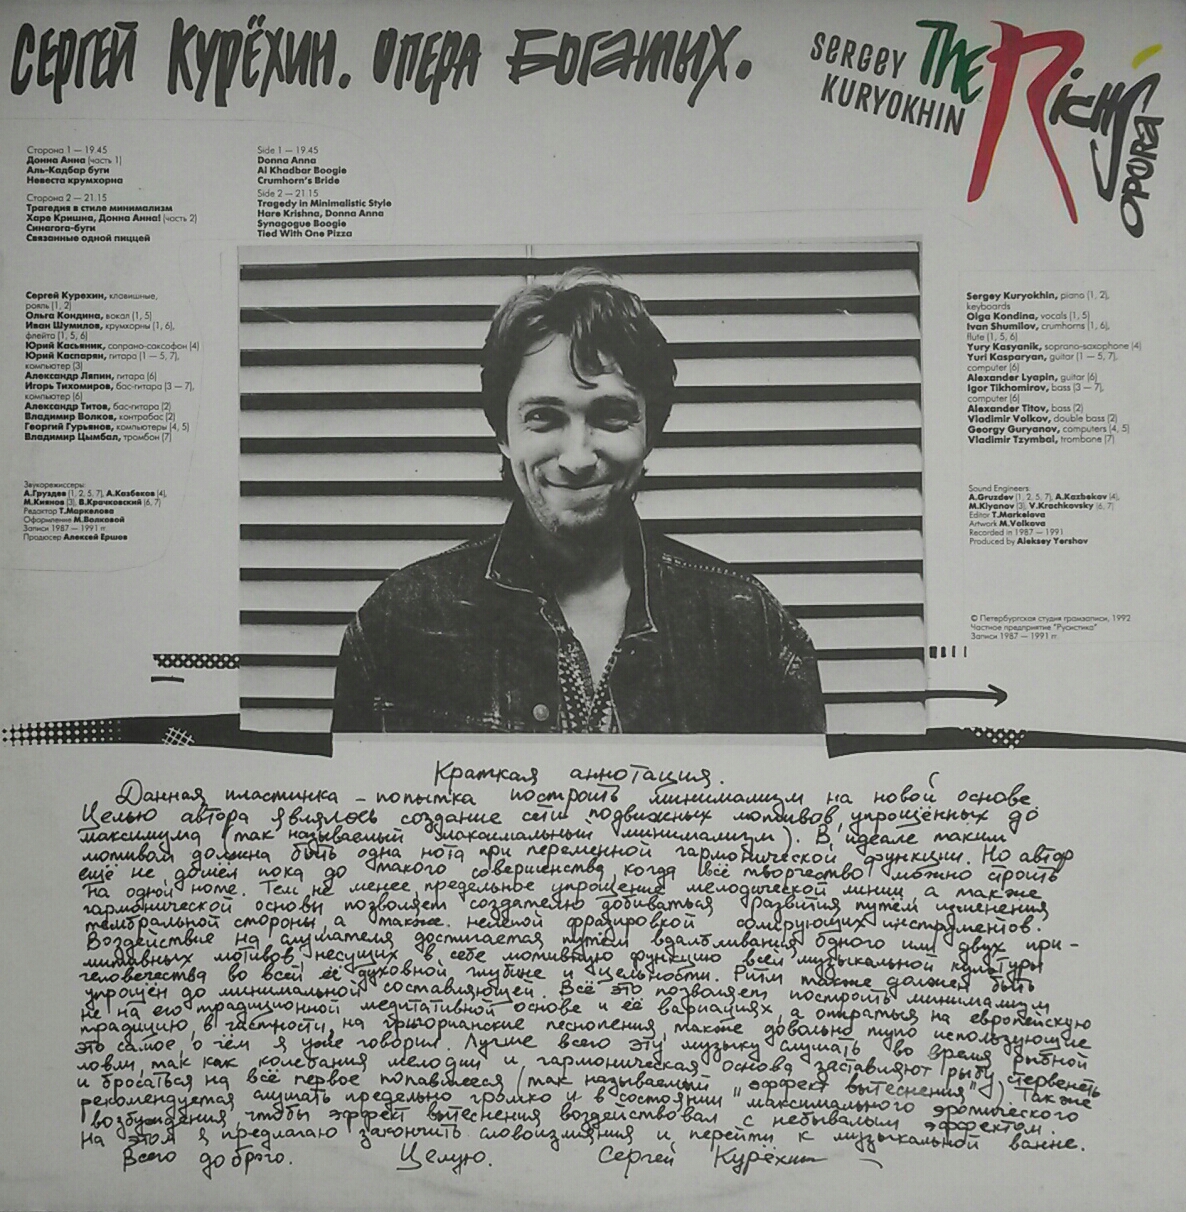 СЕРГЕЙ КУРЁХИН. ОПЕРА БОГАТЫХ.
SERGEY KURYOKHIN
THE Rich's OPORA
Сторона 1 — 19.45
Донна Анна (часть 1)
Аль-Кадбар буги
Невеста крумхорна
Сторона 2 — 21.15
Трагедия в стиле минимализм
Харе Кришна, Донна Анна! (часть 2)
Синагога-буги
Связанные одной пиццей
Side 1 — 19.45
Donna Anna
Al Khadbar Boogie
Crumhorn's Bride
Side 2 — 21.15
Tragedy in Minimalistic Style
Hare Krishna, Donna Anna
Synagogue Boogie
Tied With One Pizza
Сергей Курехин, клавишные,
рояль (1, 2)
Ольга Кондина, вокал (1, 5)
Иван Шумилов, крумхорны (1, 6),
флейта (1, 5, 6)
Юрий Касьяник, сопрано-саксофон (4)
Юрий Каспарян, гитара (1 — 5, 7),
компьютер (3)
Александр Ляпин, гитара (6)
Игорь Тихомиров, бас-гитара (3 — 7),
компьютер (6)
Александр Титов, бас-гитара (2)
Владимир Волков, контрабас (2)
Георгий Гурьянов, компьютеры (4, 5)
Владимир Цымбал, тромбон (7)
Звукорежиссеры:
А.Груздев (1, 2, 5, 7), А.Казбеков (4),
М.Киянов (3), В.Крачковский (6, 7)
Редактор Т.Маркелова
Оформление М.Волковой
Записи 1987 — 1991 гг.
Продюсер Алексей Ершов
Sergey Kuryokhin, piano (1, 2),
keyboards
Olga Kondina, vocals (1, 5)
Ivan Shumilov, crumhorns (1, 6),
flute (1, 5, 6)
Yury Kasyanik, soprano-saxophone (4)
Yuri Kasparyan, guitar (1 — 5, 7),
computer (6)
Alexander Lyapin, guitar (6)
Igor Tikhomirov, bass (3 — 7),
computer (6)
Alexander Titov, bass (2)
Vladimir Volkov, double bass (2)
Georgy Guryanov, computers (4, 5)
Vladimir Tzymbal, trombone (7)
Sound Engineers:
A.Gruzdev (1, 2, 5, 7), A.Kazbekov (4),
M.Klyanov (3), V.Krachkovsky (6, 7)
Editor T.Markelova
Artwork M.Volkova
Recorded in 1987 — 1991
Produced by Aleksey Yershov
© Петербургская студия грамзаписи, 1992
Частное предприятие "Русистика"
Записи 1987 — 1991 гг.
Краткая аннотация.
Данная пластинка – попытка построить минимализм на новой основе.
Целью автора являлось создание сети подвижных мотивов, упрощённых до
максимума (так называемый "максимальный минимализм"). В идеале таким
мотивом должна быть одна нота при переменной гармонической функции. Но автор
ещё не дошёл пока до такого совершенства, когда всё творчество можно строить
на одной ноте. Тем не менее, предельное упрощение мелодической линии, а также
гармонической основы позволяет создателю добиваться развития путём изменения
тембральной стороны, а также нелепой фразировкой солирующих инструментов.
Воздействие на слушателя достигается путём вдалбливания одного или двух при-
митивных мотивов, несущих в себе мотивную функцию всей музыкальной культуры
человечества во всей её духовной глубине и цельности. Ритм также должен быть
упрощён до минимальной составляющей. Всё это позволяет построить минимализм
не на его традиционной медитативной основе и её вариациях, а опираться на европейскую
традицию, в частности, на григорианские песнопения, также довольно тупо использующие
это самое, о чём я уже говорил. Лучше всего эту музыку слушать во время рыбной
ловли, так как колебания мелодии и гармоническая основа заставляют рыбу стервенеть
и бросаться на всё первое попавшееся (так называемый "эффект вытеснения"). Также
рекомендуется слушать предельно громко и в состоянии "максимального эротического
возбуждения, чтобы эффект вытеснения воздействовал с небывалым эффектом.
На этом я предлагаю закончить словоизлияния и перейти к музыкальной ванне.
Всего доброго. Целую. Сергей Курёхин